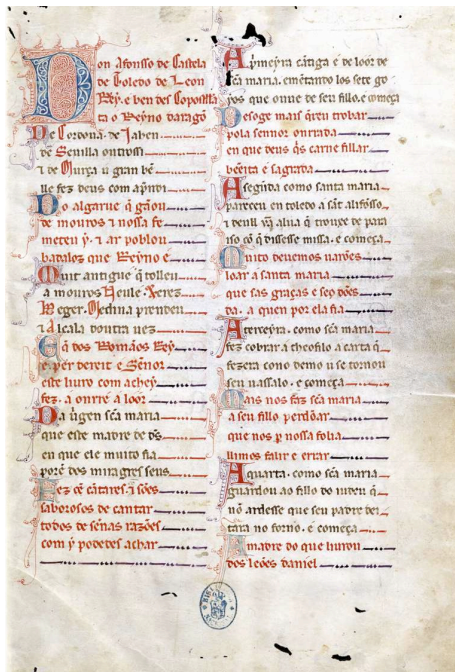 Don Afonsso de Castela
de Toledo de Leon
Rey. e ben des Compostela
ta o Reyno daragō
De Cordoua. de Jahen
de Seuilla outrossi
⁊ de Murça u gran bē
lle fez deus com aprndi
Do algarue q̄ gāou
de mouros ⁊ nossa fe
meteu y. ⁊ ar poblou
badalloz que Reyno é
Muit antigue q̄ tolleu
a mouros Neule. Xerez
Beger. Medina prendeu
⁊ Alcala doutra uez
E q̄ dos Romāos Rey
é per dereit e Sēnor
este liuro com achey
fez. a onrr e a loor
Da uirgen scā maria
que este madre de d̄s
en que ele muito fia
porē dos miragres seus
Fez oē cātares. ⁊ sōes
saborosos de cantar
todos de sēnas razōes
com y podedes achar
A primeyra cātiga é de loor de
scā maria. emētando los sete go
yos que ouue de seu fillo. e começa
Desoge mais q̄reu trobar
pola sennor onrrada
en que deus q̄s carne fillar
bēeita e sagrada
A segūda como santa maria
pareceu en toledo a sāt alifosso
⁊ deull ūa alua q̄ trouxe de para
iso cō q̄ dissesse missa. e começa
Muito deuemos uarōes
loar a santa maria
que sas graças e seꝯ dōes
da. a quen por ela fia
A terceyra. como scā maria
fez cobrar a theofilo a carta q̄
fezera cono demo u se tornou
seu uassalo. e começa
Mais nos faz scā maria
a seu fillo perdōar
que nos ꝑ nossa folia
llimos falir e errar
A quarta. como scā maria
guardou ao fillo do iudeu q̄
nō ardesse que seu padre dei
tara no forno. e começa
A madre do que liurou
dos leōes daniel